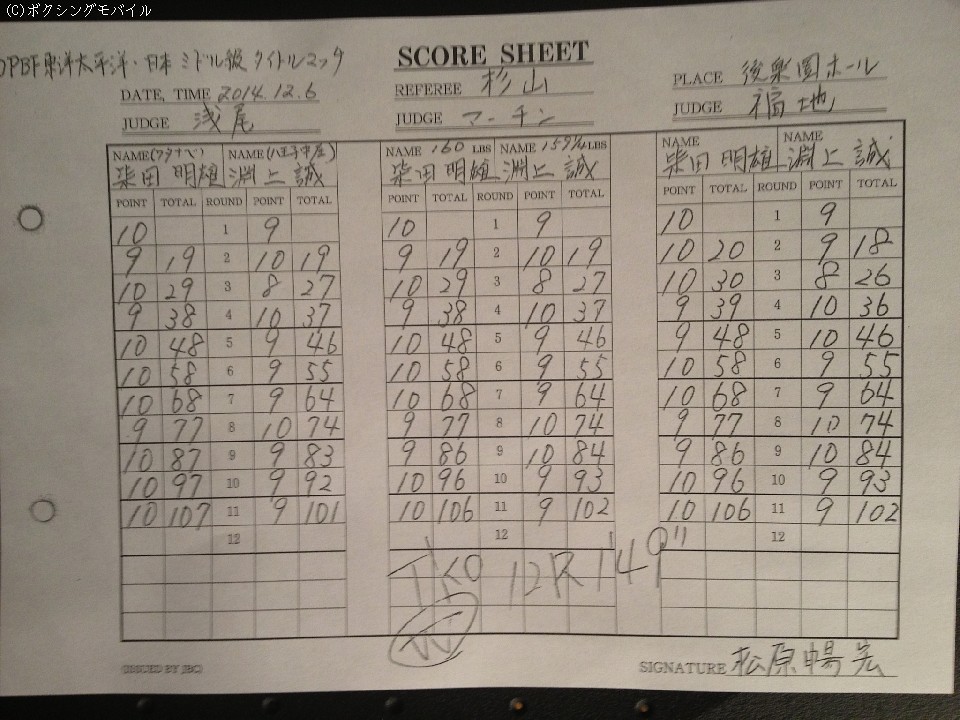 (C)ボクシングモバイル
OPBF東洋太平洋・日本ミドル級タイトルマッチ
SCORE SHEET
DATE, TIME 2014.12.6
REFEREE 杉山
PLACE 後楽園ホール
JUDGE 浅尾
JUDGE マーチン
JUDGE 福地
NAME (ワタナベ) NAME (八王子中屋) NAME 160 LBS NAME 159¾ LBS NAME NAME
柴田 明雄 淵上 誠 柴田 明雄 淵上 誠 柴田 明雄 淵上 誠
POINT TOTAL ROUND POINT TOTAL POINT TOTAL ROUND POINT TOTAL POINT TOTAL ROUND POINT TOTAL
10 1 9 10 1 9 10 1 9
9 19 2 10 19 9 19 2 10 19 10 20 2 9 18
10 29 3 8 27 10 29 3 8 27 10 30 3 8 26
9 38 4 10 37 9 38 4 10 37 9 39 4 10 36
10 48 5 9 46 10 48 5 9 46 9 48 5 10 46
10 58 6 9 55 10 58 6 9 55 10 58 6 9 55
10 68 7 9 64 10 68 7 9 64 10 68 7 9 64
9 77 8 10 74 9 77 8 10 74 9 77 8 10 74
10 87 9 9 83 9 86 9 10 84 9 86 9 10 84
10 97 10 9 92 10 96 10 9 93 10 96 10 9 93
10 107 11 9 101 10 106 11 9 102 10 106 11 9 102
12 12 12
TKO 12R 1'49"
W
ISSUED BY JBC
SIGNATURE 松原暢宏